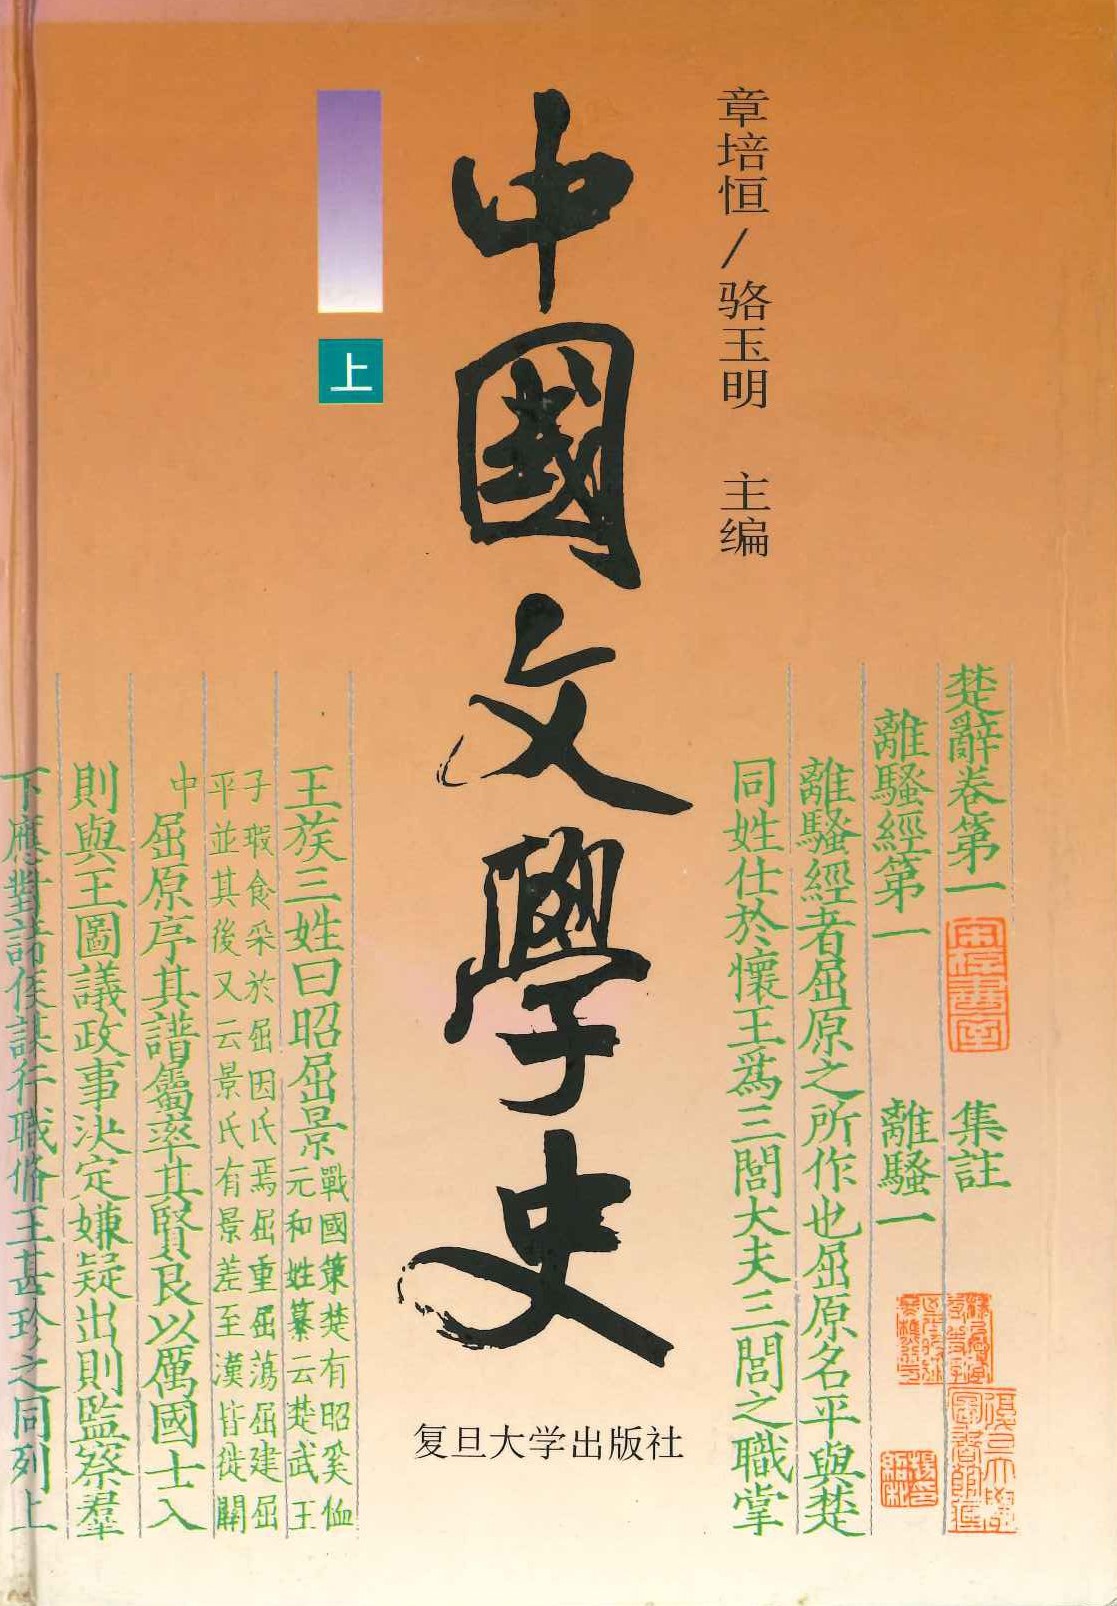 章培恒/骆玉明 主编
中國文學史
上
复旦大学出版社
楚辭卷第一 集註
離騷經第一 離騷一
離騷經者屈原之所作也屈原名平與楚
同姓仕於懷王爲三閭大夫三閭之職掌
王族三姓曰昭屈景
戰國策楚有昭奚恤
元和姓纂云楚武王
子瑕食采於屈因氏焉屈重屈蕩屈建屈
平並其後又云景氏有景差至漢皆徙關
中
屈原序其譜屬率其賢良以厲國士入
則與王圖議政事決定嫌疑出則監察羣
下應對諸侯謀行職脩王甚珍之同列上